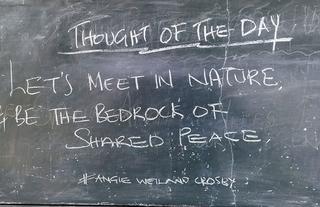 THOUGHT OF THE DAY
LET'S MEET IN NATURE,
& BE THE BEDROCK OF
SHARED PEACE.
#ANGIE WEILAND CROSBY